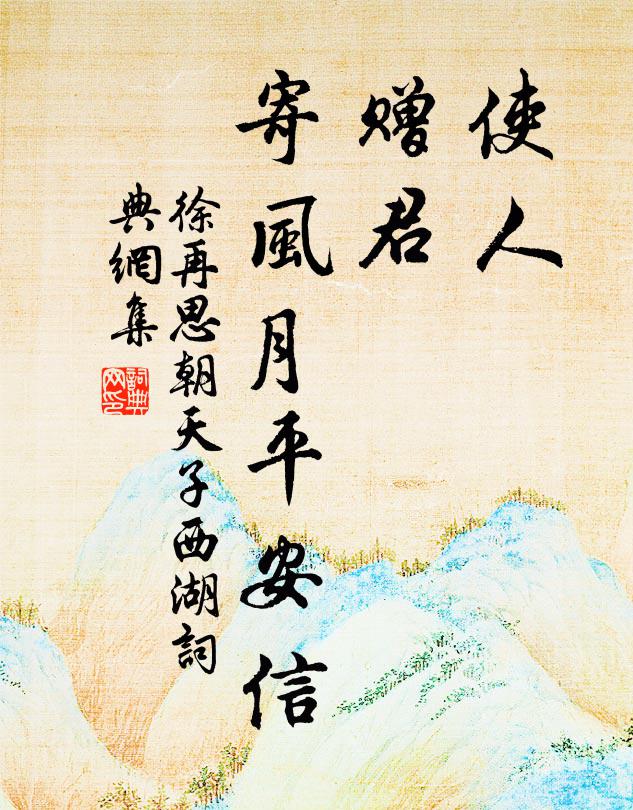 使人
贈君
寄風月平安信
徐再思朝天子西湖詞
典網集
詞典
网印